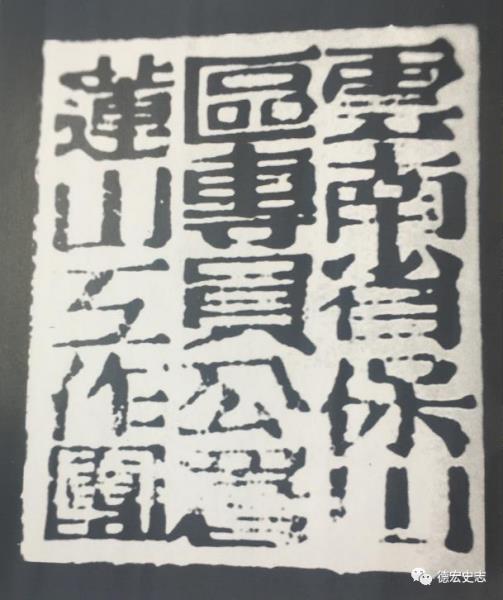 雲南省保山
區專員公署
蓮山工作團
德宏史志